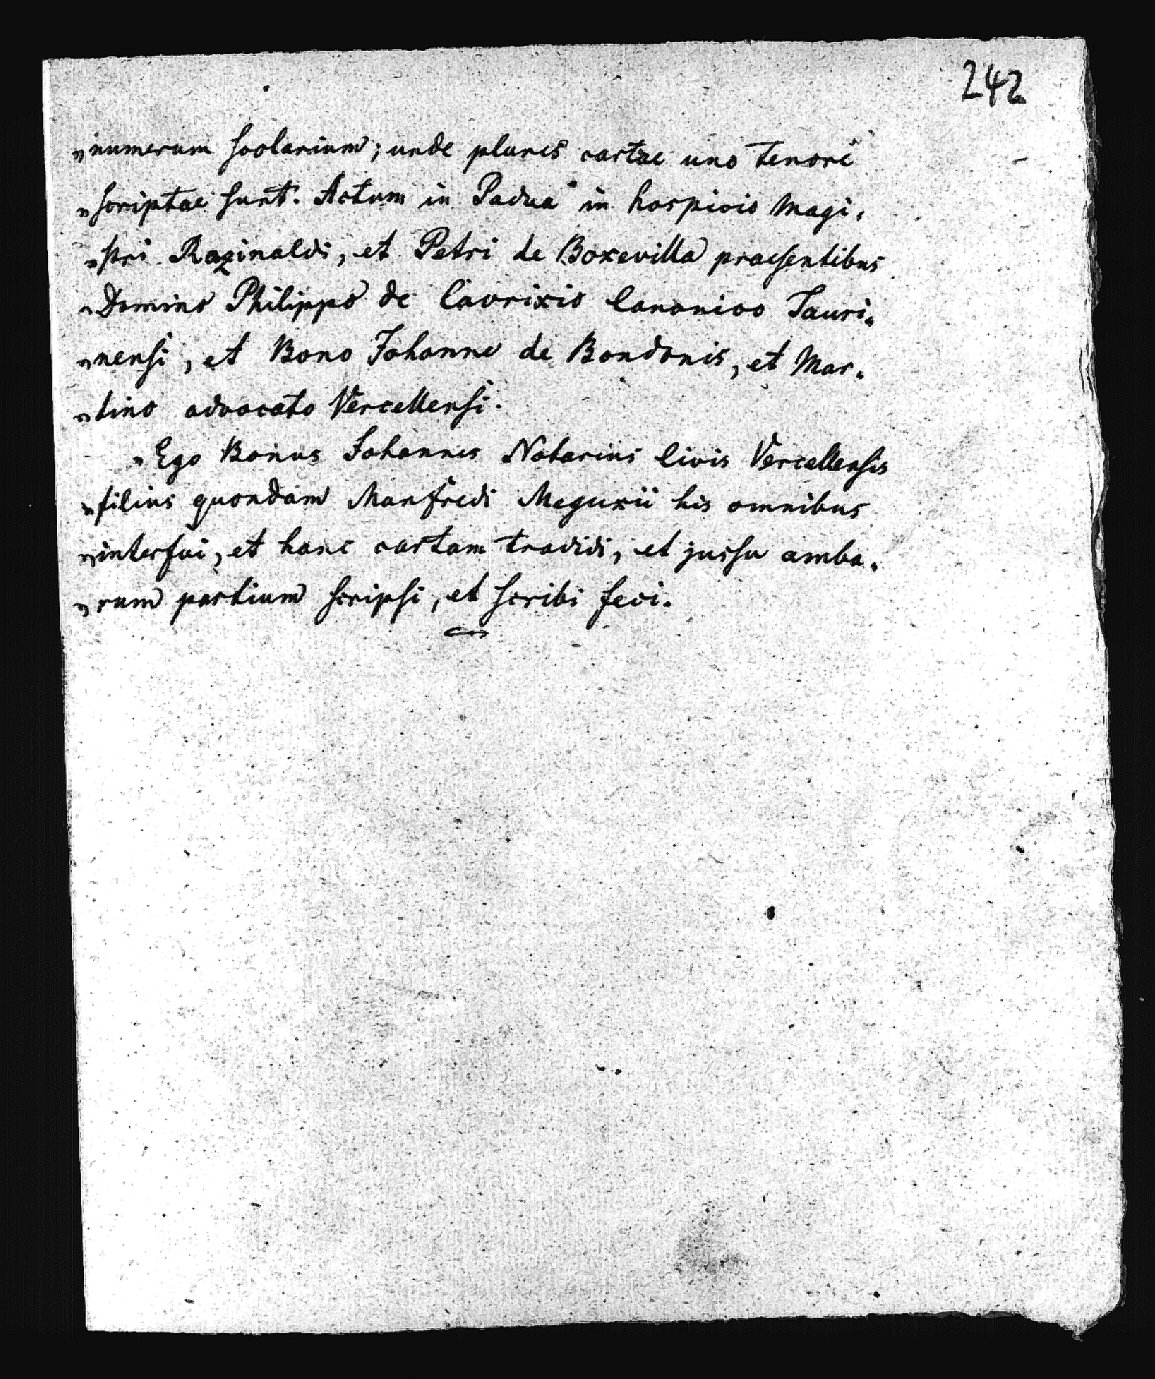 242
„numerum scolarium; unde plures cartae uno tenore
„scriptae sunt. Actum in Padua in hospicio Magi.
„stri Raginaldi, et Petri de Boxevilla praesentibus
„Domino Philippo de Cavrixio Canonico Tauri.
„nensi, et Bono Johanne de Bondonis, et Mar.
„tino advocato Vercellensi.
„Ego Bonus Johannes Notarius Civis Vercellensis
„filius quondam Manfredi Meguxii his omnibus
„interfui, et hanc cartam tradidi, et jussu amba.
„rum partium scripsi, et scribi feci.